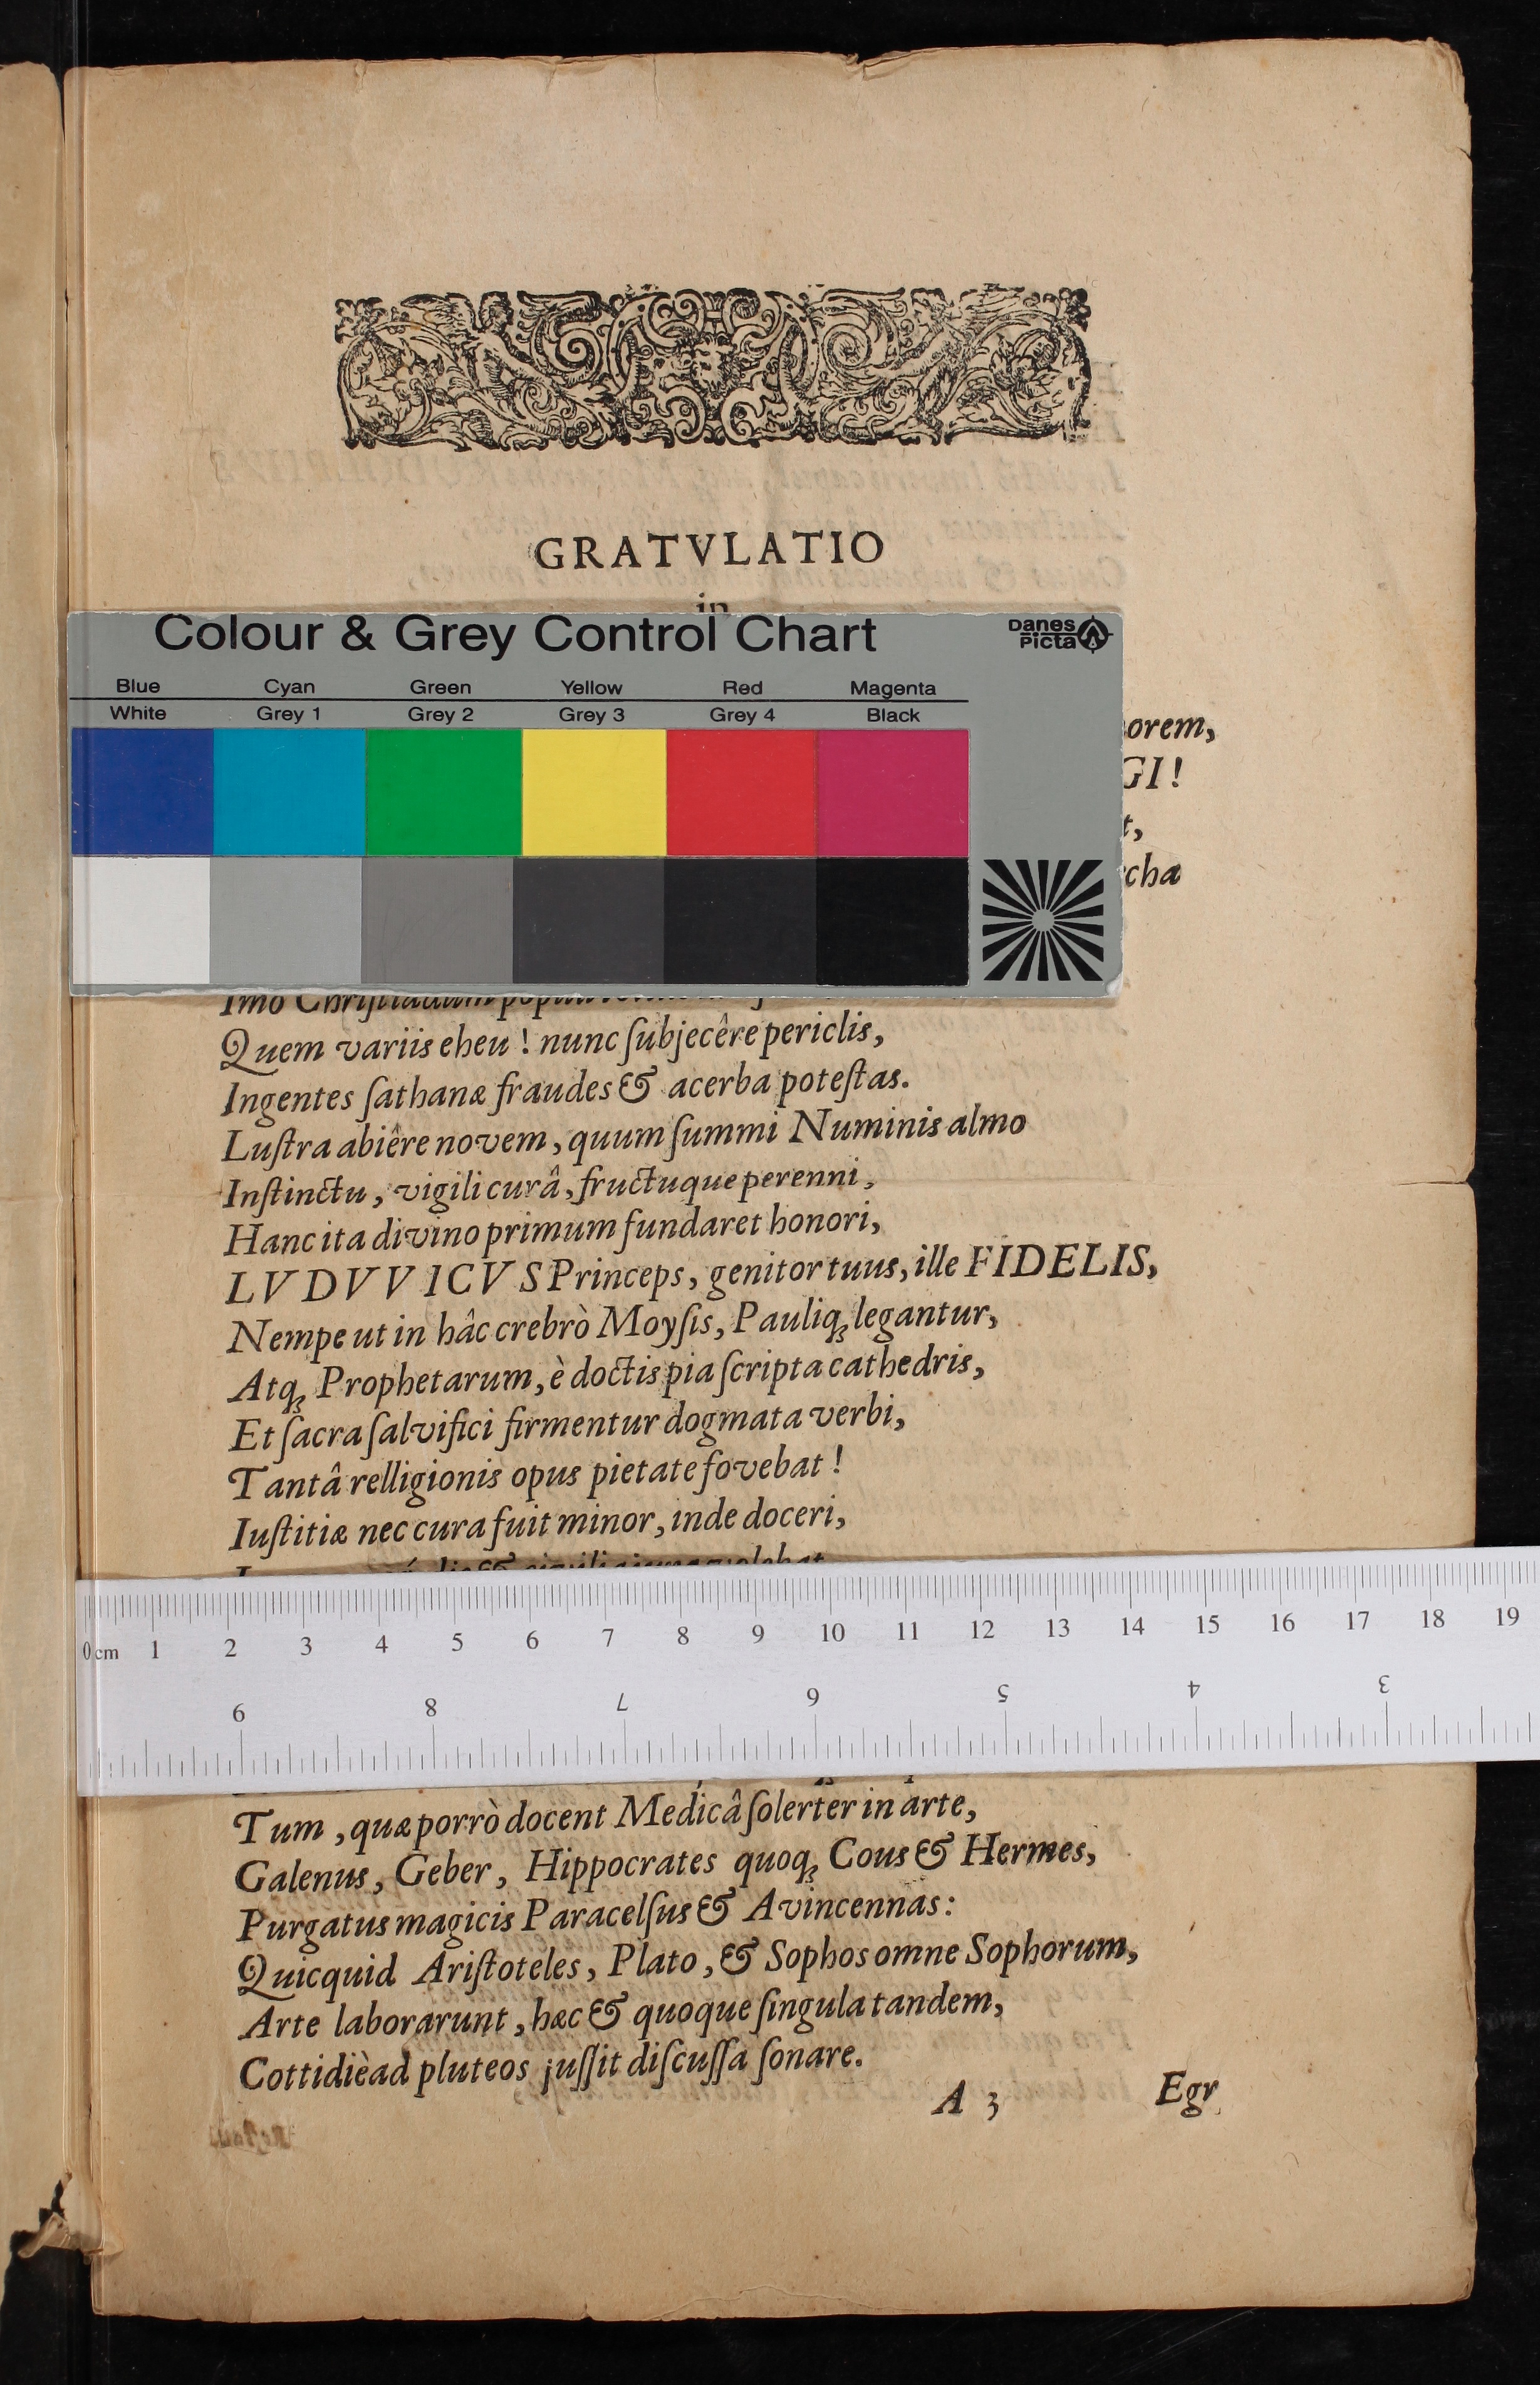 GRATVLATIO
in
Colour & Grey Control Chart
Danes
Picta
Blue Cyan Green Yellow Red Magenta
White Grey 1 Grey 2 Grey 3 Grey 4 Black
orem,
GI!
t,
cha
Imo
Quem variis eheu! nunc ſubjecêre periclis,
Ingentes ſathanæ fraudes & acerba poteſtas.
Luſtra abiêre novem, quum ſummi Numinis almo
Inſtinctu, vigili curâ, fructuque perenni,
Hanc ita divino primum fundaret honori,
LVDVVICVS Princeps, genitor tuus, ille FIDELIS,
Nempe ut in hâc crebrò Moyſis, Pauliq́ȝ legantur,
Atqȝ Prophetarum, è doctis pia ſcripta cathedris,
Et ſacra ſalvifici firmentur dogmata verbi,
Tantâ relligionis opus pietate fovebat!
Iuſtitiæ nec cura fuit minor, inde doceri,
0 cm 1 2 3 4 5 6 7 8 9 10 11 12 13 14 15 16 17 18 19
9 8 7 6 5 4 3
Tum, quæ porrò docent Medicâ ſolerter in arte,
Galenus, Geber, Hippocrates quoqȝ Cous & Hermes,
Purgatus magicis Paracelſus & Avincennas:
Quicquid Ariſtoteles, Plato, & Sophos omne Sophorum,
Arte laborarunt, hæc & quoque ſingula tandem,
Cottidiè ad pluteos juſſit diſcuſſa ſonare.
A 3 Egr